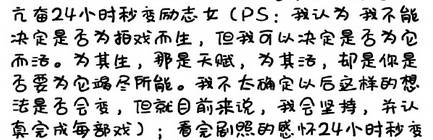 亢奋24小时秒变励志女（PS：我认为 我不能
决定是否为拍戏而生，但我可以决定是否为它
而活。为其生，那是天赋，为其活，却是你是
否要为它竭尽所能。我不太确定以后这样的想
法是否会变，但就目前来说，我会坚持，并认
真完成每部戏）；看完剧照的感怀24小时秒变